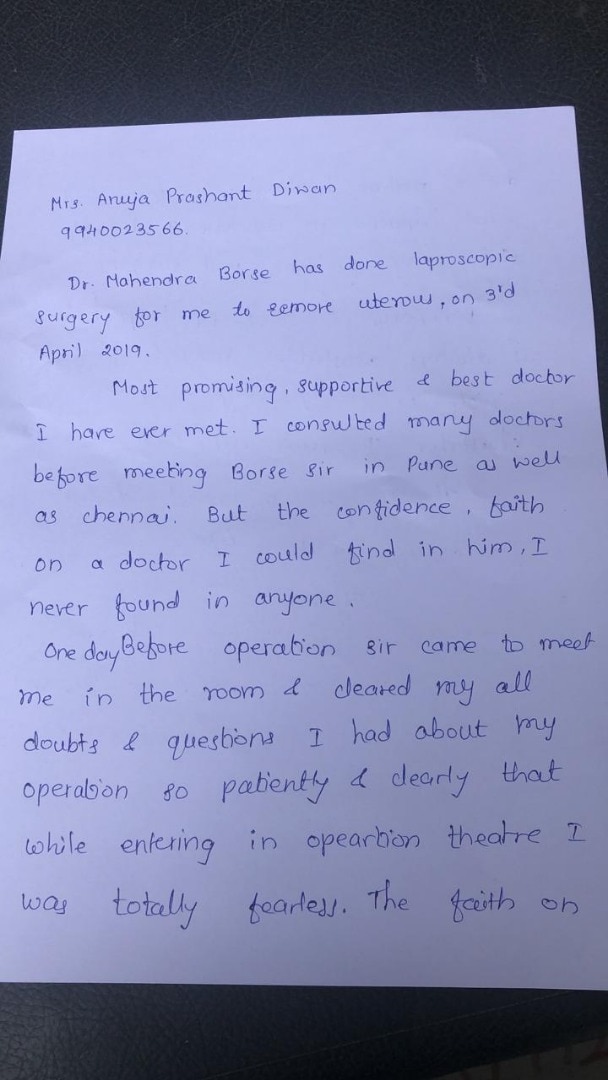 Mrs. Anuja Prashant Diwan
9940023566.
Dr. Mahendra Borse has done laproscopic
surgery for me to remore uterous, on 3'd
April 2019.
Most promising, supportive & best doctor
I have ever met. I consulted many doctors
before meeting Borse sir in Pune as well
as chennai. But the confidence, faith
on a doctor I could find in him, I
never found in anyone.
One day Before operation sir came to meet
me in the room & cleared my all
doubts & questions I had about my
operation so patiently & clearly that
while entering in opeartion theatre I
was totally fearless. The faith on